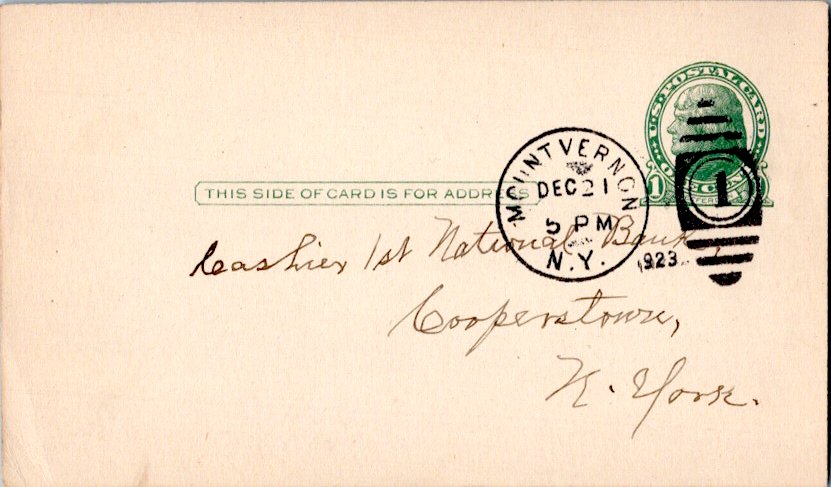 U.S. POSTAL CARD
THIS SIDE OF CARD IS FOR ADDRESS
MOUNT VERNON
DEC 21
5 PM
N.Y.
1923
1
1
Cashier 1st National Bank,
Cooperstown,
N. York.